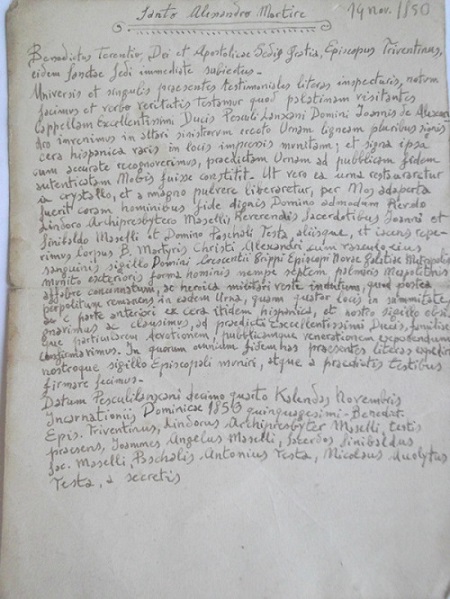 Santo Alessandro Martire 14 nov. 1850
Benedictus Terentio, Dei et Apostolicae Sedis gratia, Episcopus Triventinus,
eidem Sanctae Sedi immediate subiectus.
Universis et singulis praesentes testimoniales literas inspecturis, notum
facimus et verbo veritatis testamur quod palatinam visitantes
Cappellam Excellentissimi Ducis Pesculi Lanzani Domini Joannis de Alexan
dro invenimus in altari sinistrorsum erecto Urnam ligneam pluribus signis
cera hispanica variis in locis impressis munitam; et signa ipsa
cum accurate recognoverimus, praedictam Urnam ad pubblicam fidem
autenticatam Nobis fuisse constitit. Ut vero ea urna restauraretur
a crystallo, et a magno pulvere liberaretur, per Nos adaperta
fuerit coram hominibus fide dignis Domino admodum Revdo
Lindoro Archipresbytero Maselli, Reverendis Sacerdotibus Joanni et
Sinibaldo Maselli et Domino Paschali Testa, aliisque, et iacens repe
rimus Corpus B. Martyris Christi Alexandri cum vasculo eius
sanguinis sigillo Domini Crescentii Brippi Episcopi
munito exterioris forma hominis nempe septem palmis Neapolitanis
affabre concinnatum, ac heroica militari veste indutum, quod postea
perpolitum remanens in eadem Urna, quam quatuor locis in summitate,
et parte anteriori ex cera itidem hispanica, et nostro sigillo obsi
gnavimus ac clausimus, ad praedicti Excellentissimi Ducis, familiae
que particularem devotionem, pubblicamque venerationem exponendum
confirmavimus. In quorum omnium fidem has praesentes literas expediri
nostroque sigillo Episcopali muniri, atque a praedictis testibus
firmare fecimus.
Datum Pesculilanzani decimo quarto Kalendas Novembris
Incarnationis Dominicae 1850 quinquagesimi - Benedict.
Epis. Triventinus, Lindorus Archipresbyter Maselli testis
praesens, Joannes Angelus Maselli, Sacerdos Sinibaldus
Sac. Maselli, Paschalis Antonius Testa, Nicolaus
Testa, a secretis